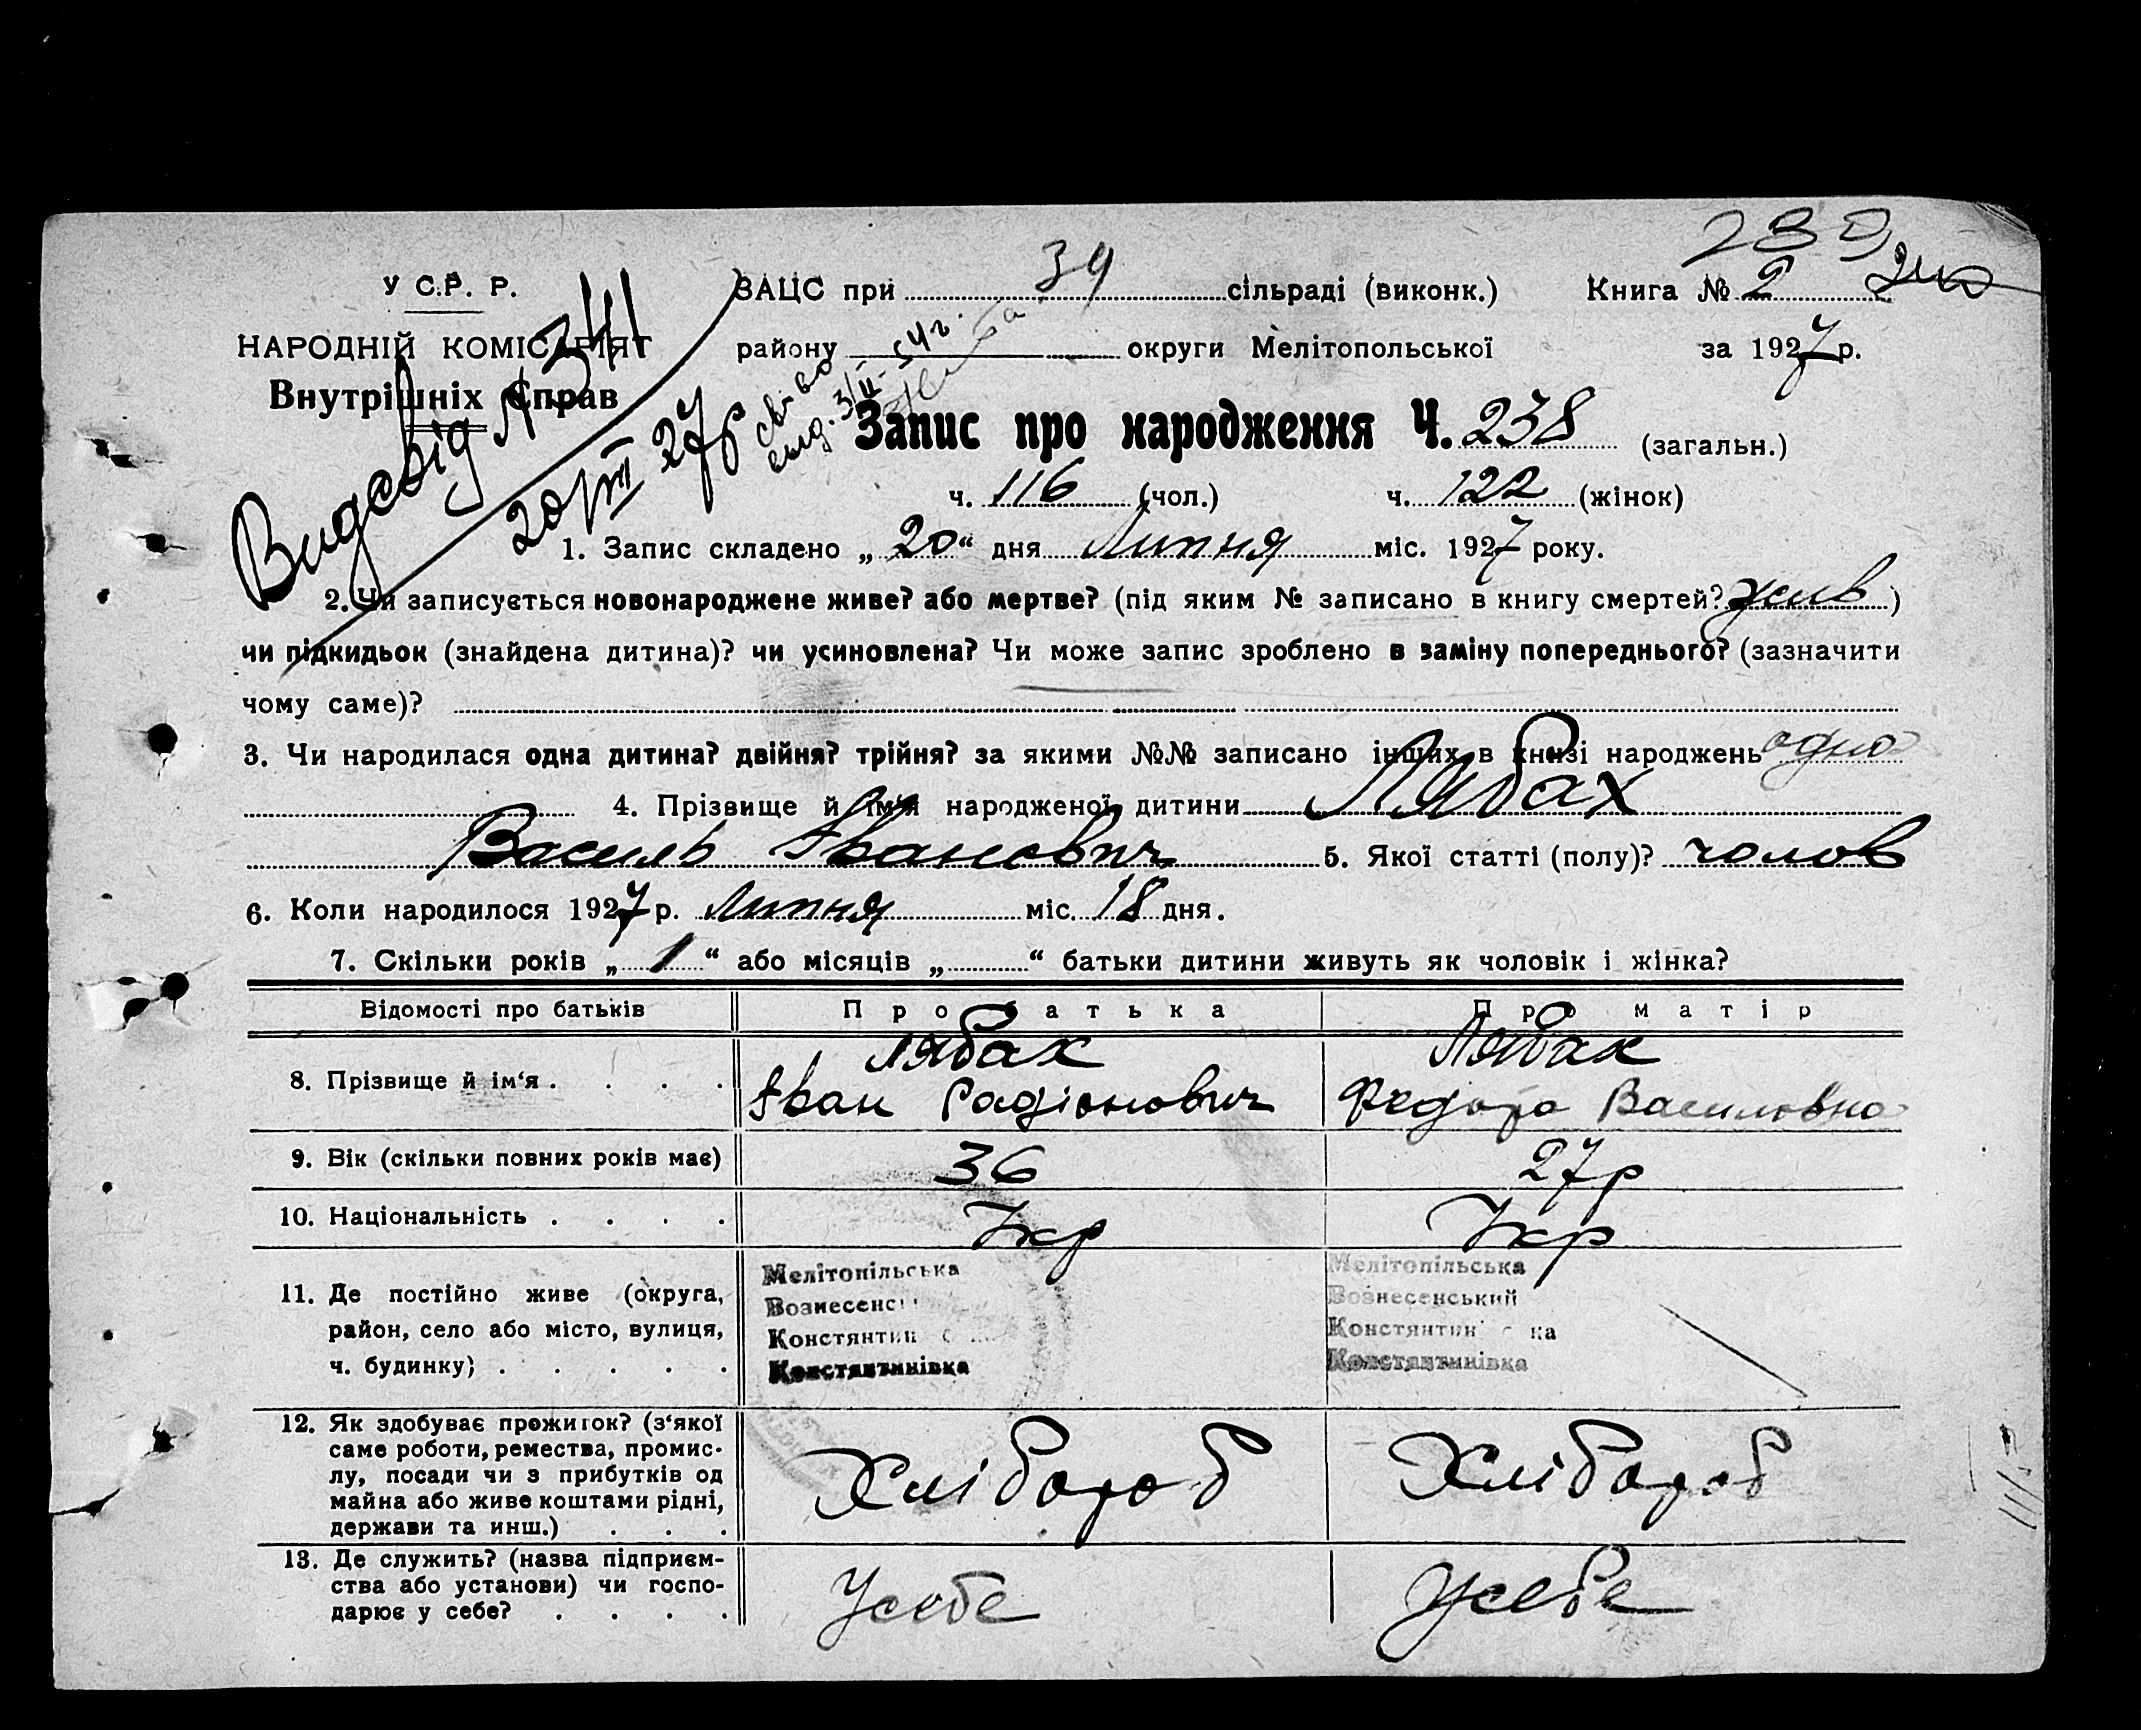 239
240
У С.Р. Р.
ЗАЦС при 39 сільраді (виконк.) Книга № 2
НАРОДНІЙ КОМІСАРІЯТ
району округи Мелітопольської за 1927 р.
Внутрішніх Справ
Вид свід № 341
20/VII 27р
Запис про народження Ч. 238 (загальн.)
ч. 116 (чол.) ч. 122 (жінок)
1. Запис складено „20“ дня Липня міс. 1927 року.
2. Чи записується новонароджене живе? або мертве? (під яким № записано в книгу смертей? жив)
чи підкидьок (знайдена дитина)? чи усиновлена? Чи може запис зроблено в заміну попереднього? (зазначити
чому саме)?
3. Чи народилася одна дитина? двійня? трійня? за якими №№ записано інших в книзі народжень одна
4. Прізвище й ім'я народженої дитини Лябах
Василь Іванович 5. Якої статті (полу)? чолов
6. Коли народилося 1927 р. Липня міс. 18 дня.
7. Скільки років „ 1 “ або місяців „ “ батьки дитини живуть як чоловік і жінка?
Відомості про батьків Про батька Про матір
8. Прізвище й ім‘я . . . . Лябах Іван Радіонович Лябах Федора Василовна
9. Вік (скільки повних років має) 36 27р
10. Національність . . . . Укр Укр
11. Де постійно живе (округа,
район, село або місто, вулиця,
ч. будинку) . . . . .
Мелітопільська
Вознесенс
Констянтин
Констянтинівка
Мелітопільська
Вознесенський
Констянтин ка
Констянтинівка
12. Як здобуває прожиток? (з‘якої
саме роботи, ремества, промис-
лу, посади чи з прибутків од
майна або живе коштами рідні,
держави та инш.) . . .
Хлібороб Хлібороб
13. Де служить? (назва підприєм-
ства або установи) чи госпо-
дарює у себе? . . . .
У себе У себе